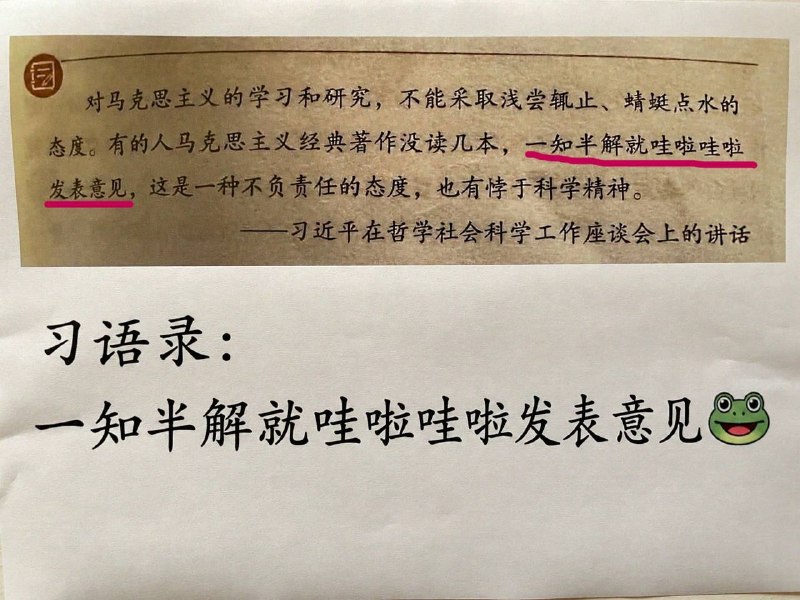 对马克思主义的学习和研究，不能采取浅尝辄止、蜻蜓点水的
态度。有的人马克思主义经典著作没读几本，一知半解就哇啦哇啦
发表意见，这是一种不负责任的态度，也有悖于科学精神。
——习近平在哲学社会科学工作座谈会上的讲话
习语录：
一知半解就哇啦哇啦发表意见🐸